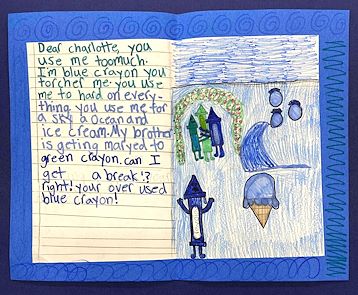 Dear charlotte, you
use me toomuch.
I'm blue crayon you
torcher me. you use
me to hard on every-
thing you use me for
a sky a ocean and
ice cream. My brother
is geting maryed to
green crayon. can I
get a break!?
right! your over used
blue crayon!